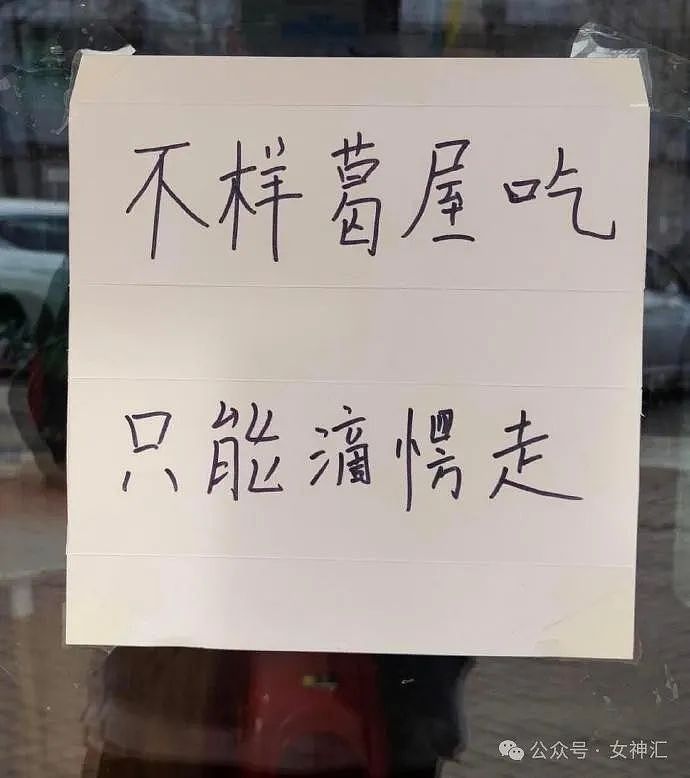 不样葛屋吃
只能滴愣走
公众号·女神汇